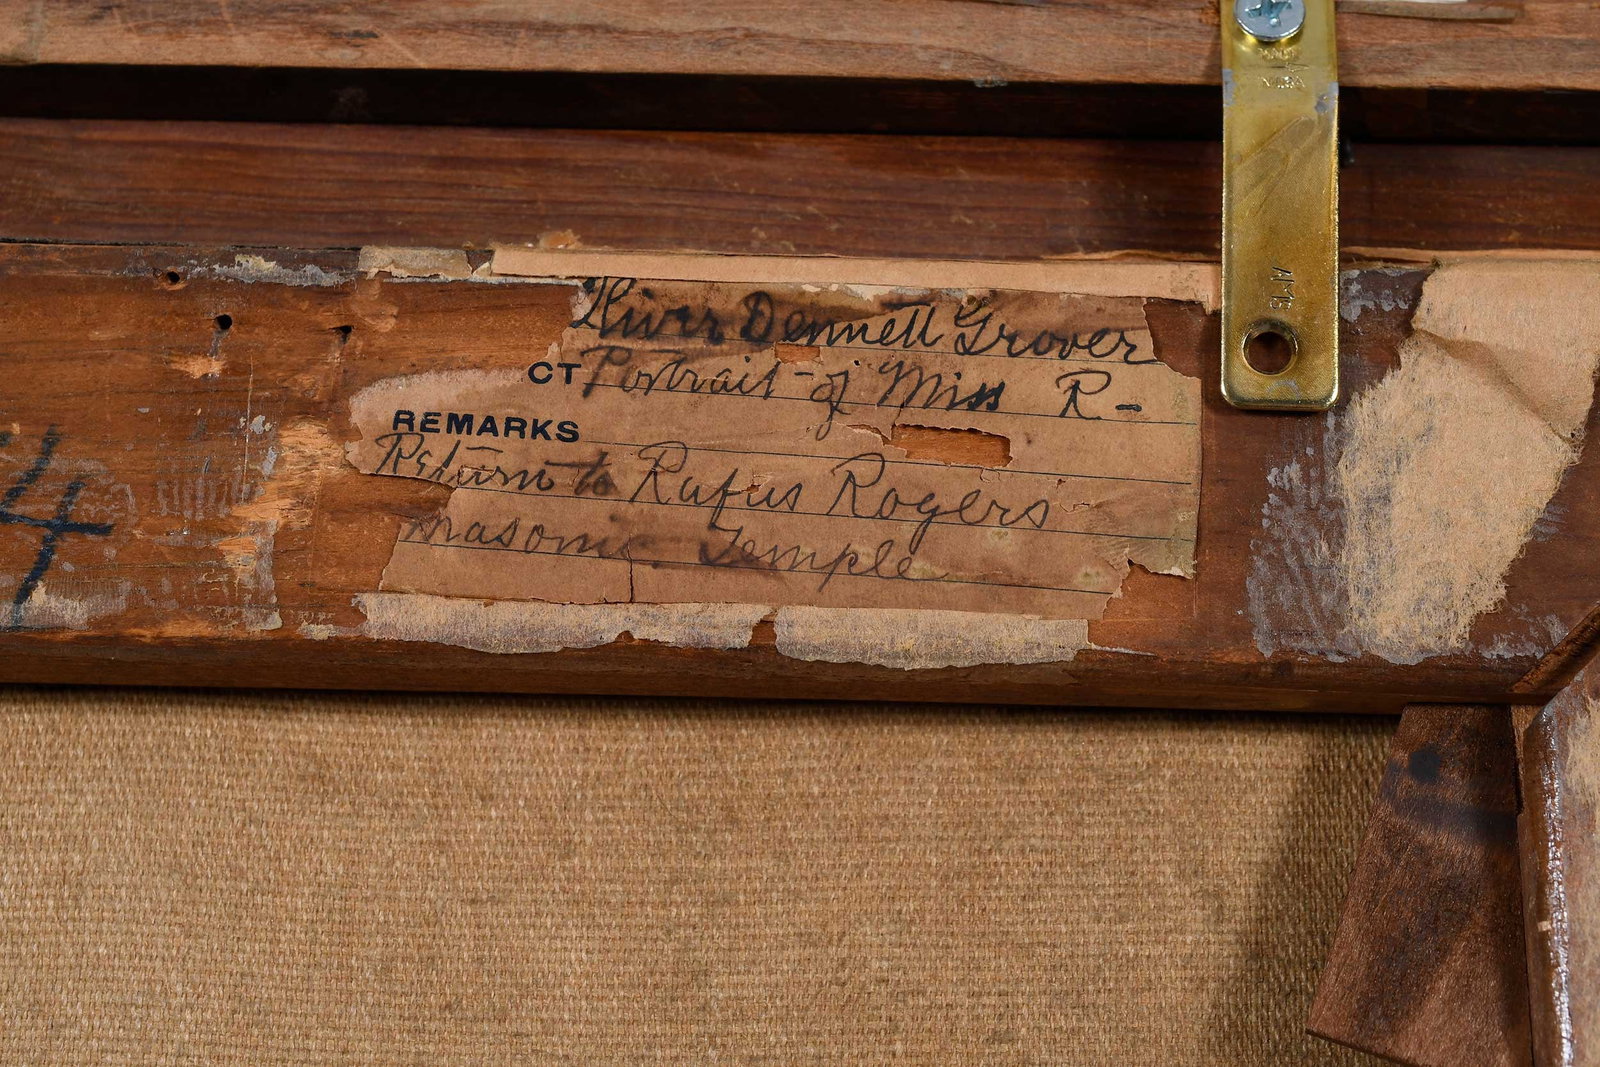 Oliver Dennett Grover
CT Portrait - of Miss R -
REMARKS
Return to Rufus Rogers
Masonic Temple
4
MADE
IN USA
AMS